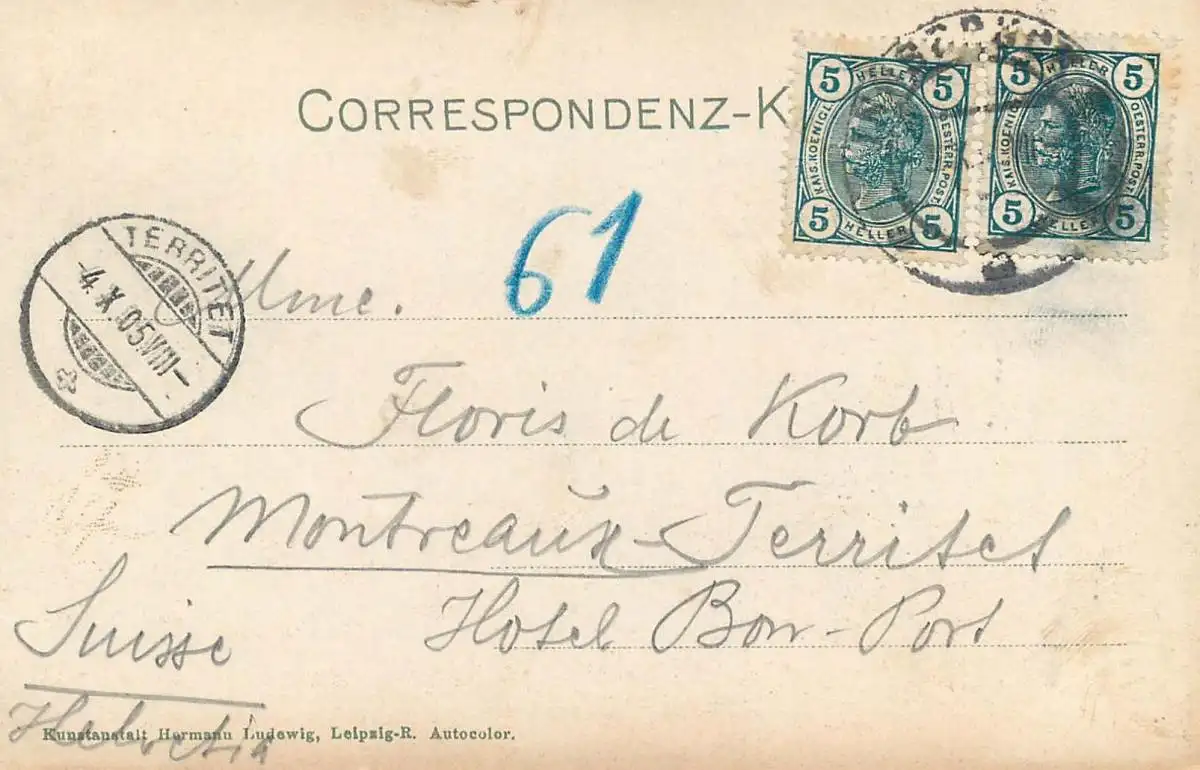 CORRESPONDENZ-K
5 HELLER 5
KAIS. KOENIGL. OESTERR. POST
5 HELLER 5
5 HELLER 5
KAIS. KOENIGL. OESTERR. POST
5 HELLER 5
61
TERRITET
-4.X.05.VIII-
Mme.
Floris de Korb
Montreaux-Territet
Hotel Bon-Port
Suisse
Helvetia
Kunstanstalt Hermann Ludewig, Leipzig-R. Autocolor.